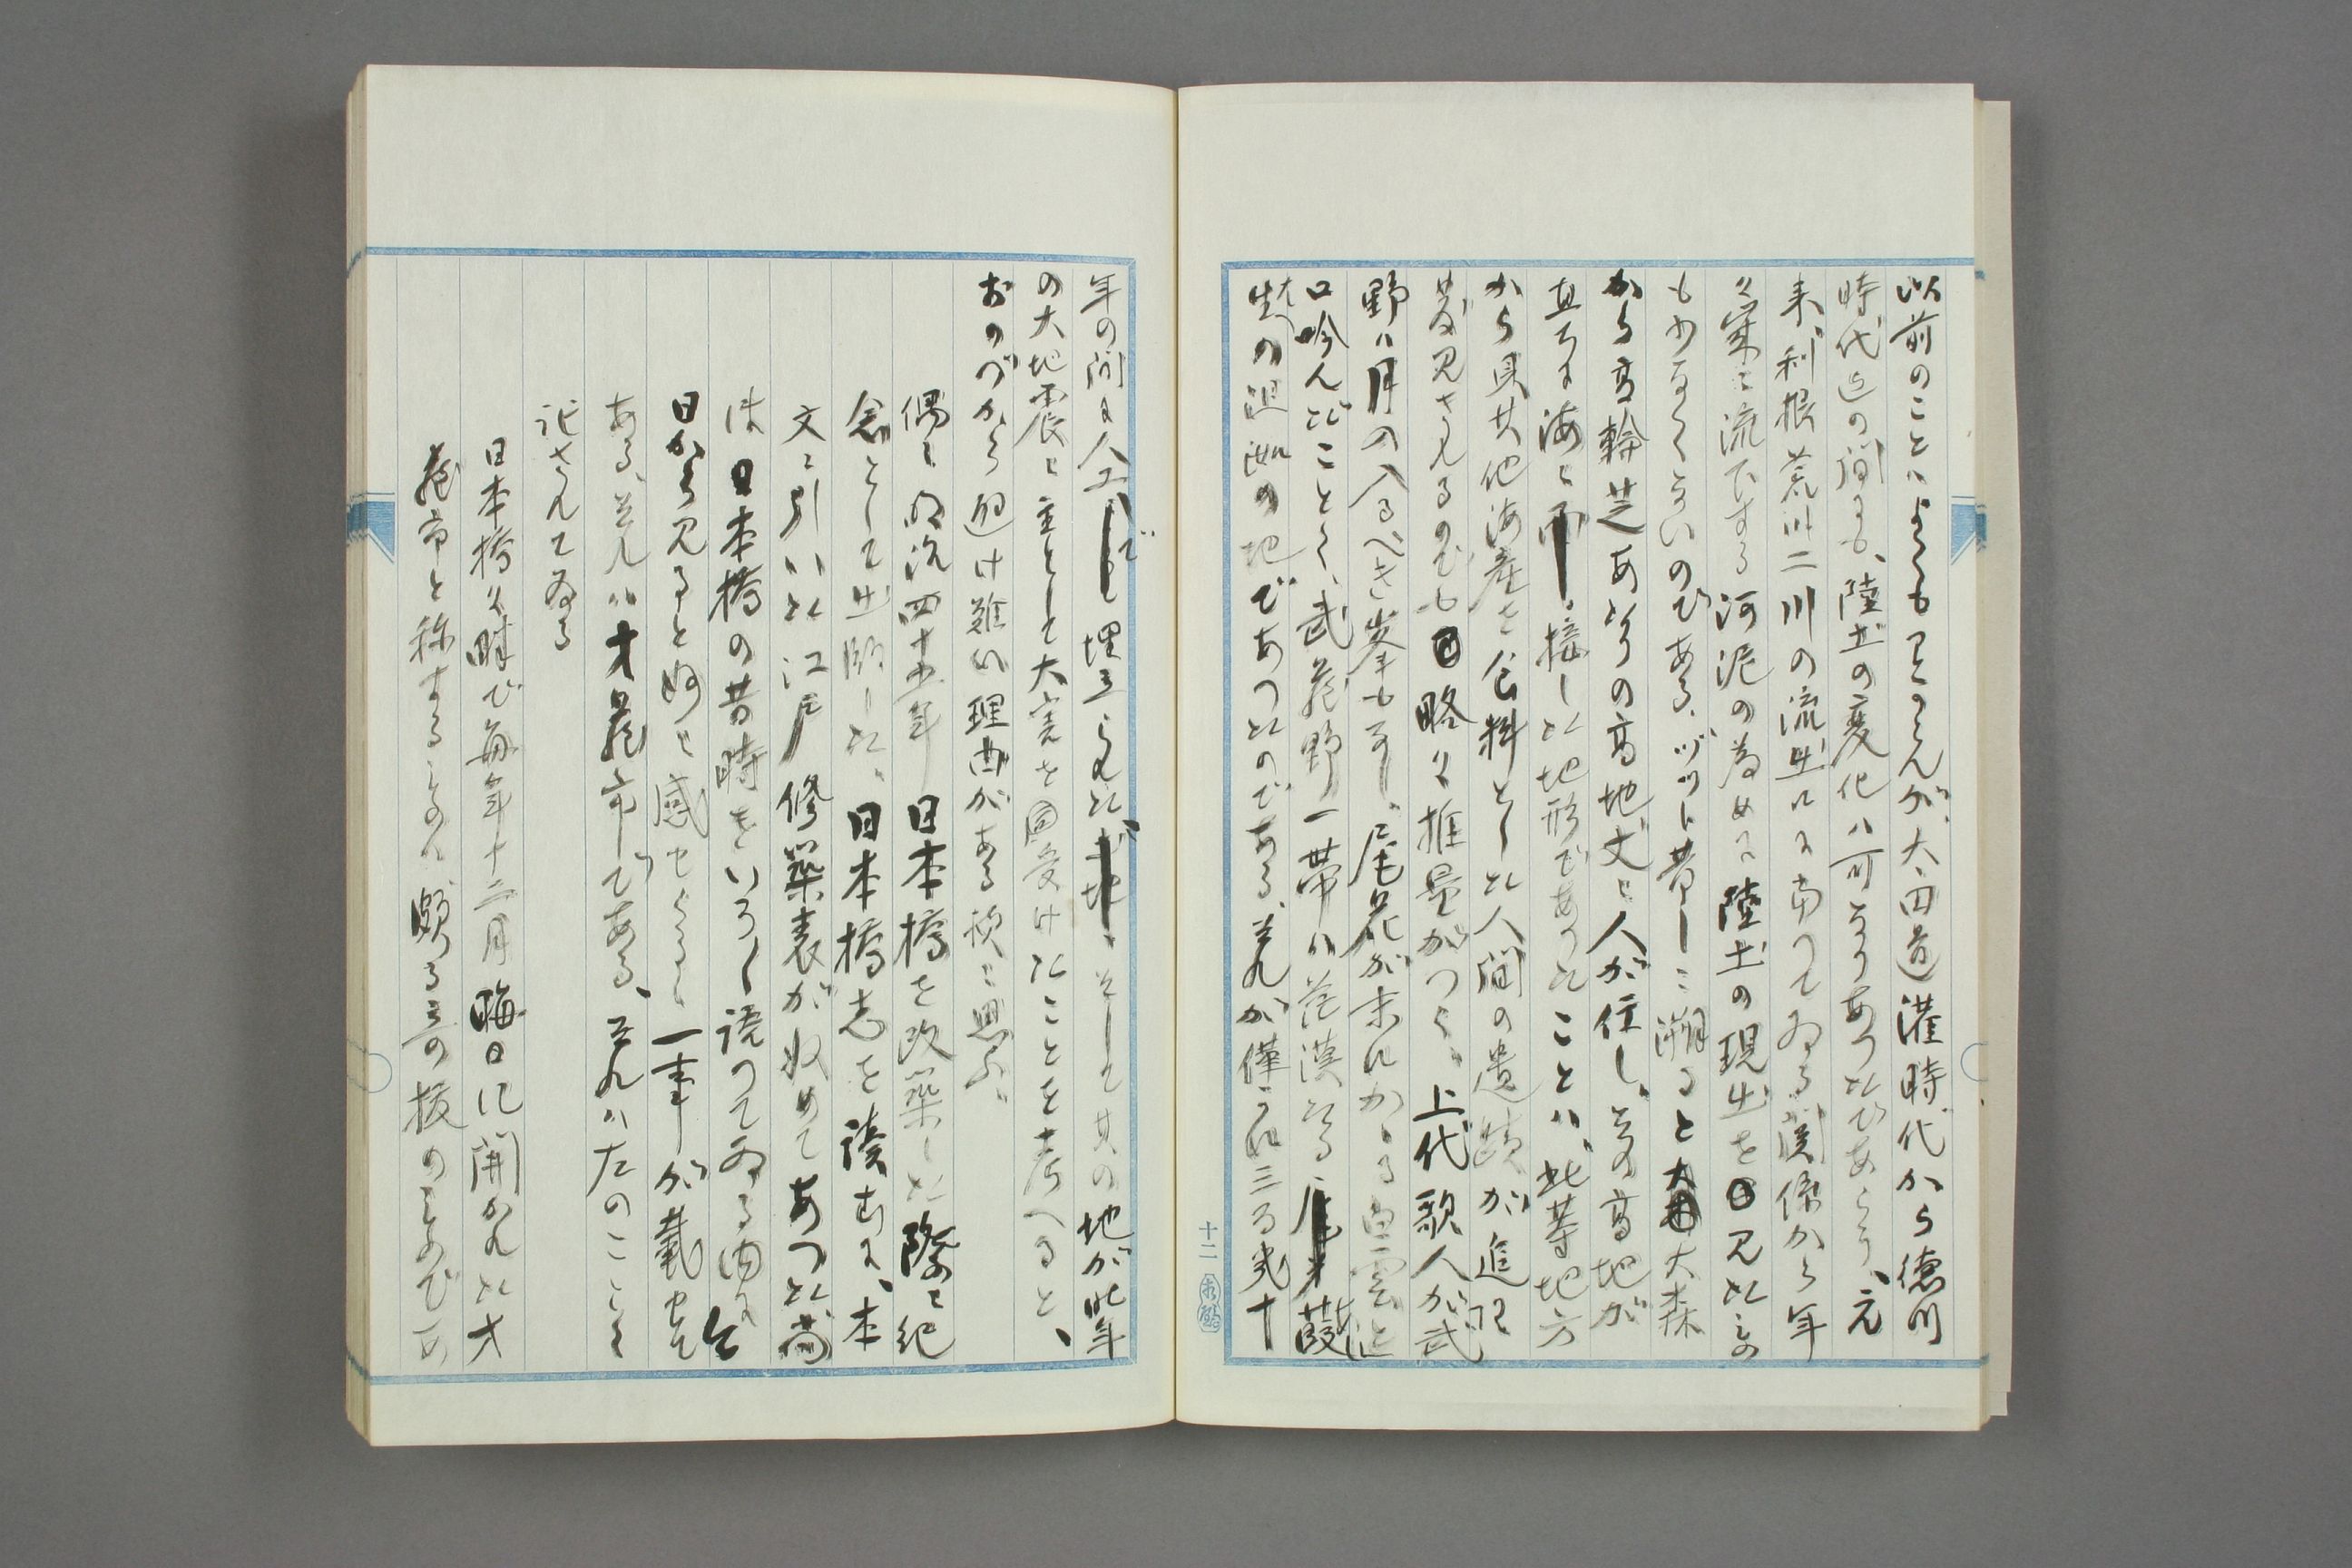 以前のことはよくもわからんが、大田道灌時代から徳川
時代迄の間にも、陸土の変化は可なりあつたであらう、元
来利根荒川二川の流出口に当つてゐる関係から年
々案に流下する河泥の為めに陸土の現出を見たもの
も少なくないのである、ヅツト昔しに溯ると大森
から高輪芝あたりの高地丈に人が住し、その高地が
直ちに海に接した地形であつたことは、此等地方
から貝其他海産を食料とした人間の遺蹟が追々
発見さるるのでも略々推量がつく、上代歌人が武
野は月の入るべき峯もなし、尾花が末にかかる白雲と
口吟んだことく、武蔵野一帯は茫漠たる葭
生への沮洳の地であつたのである、それが僅かに三百幾十
年の間に人工で埋立られた、そして其の地が昨年
の大地震に主として大害を受けたことを考へると、
おのづから避け難い理由がある様に思ふ、
偶々明治四十四年日本橋を改築した際に紀
念として出版した、日本橋志を読むに、本
文に引いた江戸修築表が収めてあつた尚
ほ日本橋の昔時をいろいろ語つてゐる内に今
日から見ると妙に感ぜらるる一事が載せて
ある、それは才蔵市である、それは左のことく
記されてゐる
日本橋々畔で毎年十二月晦日に開かれた才
蔵市と称するものは頗る奇抜のものであ
十二